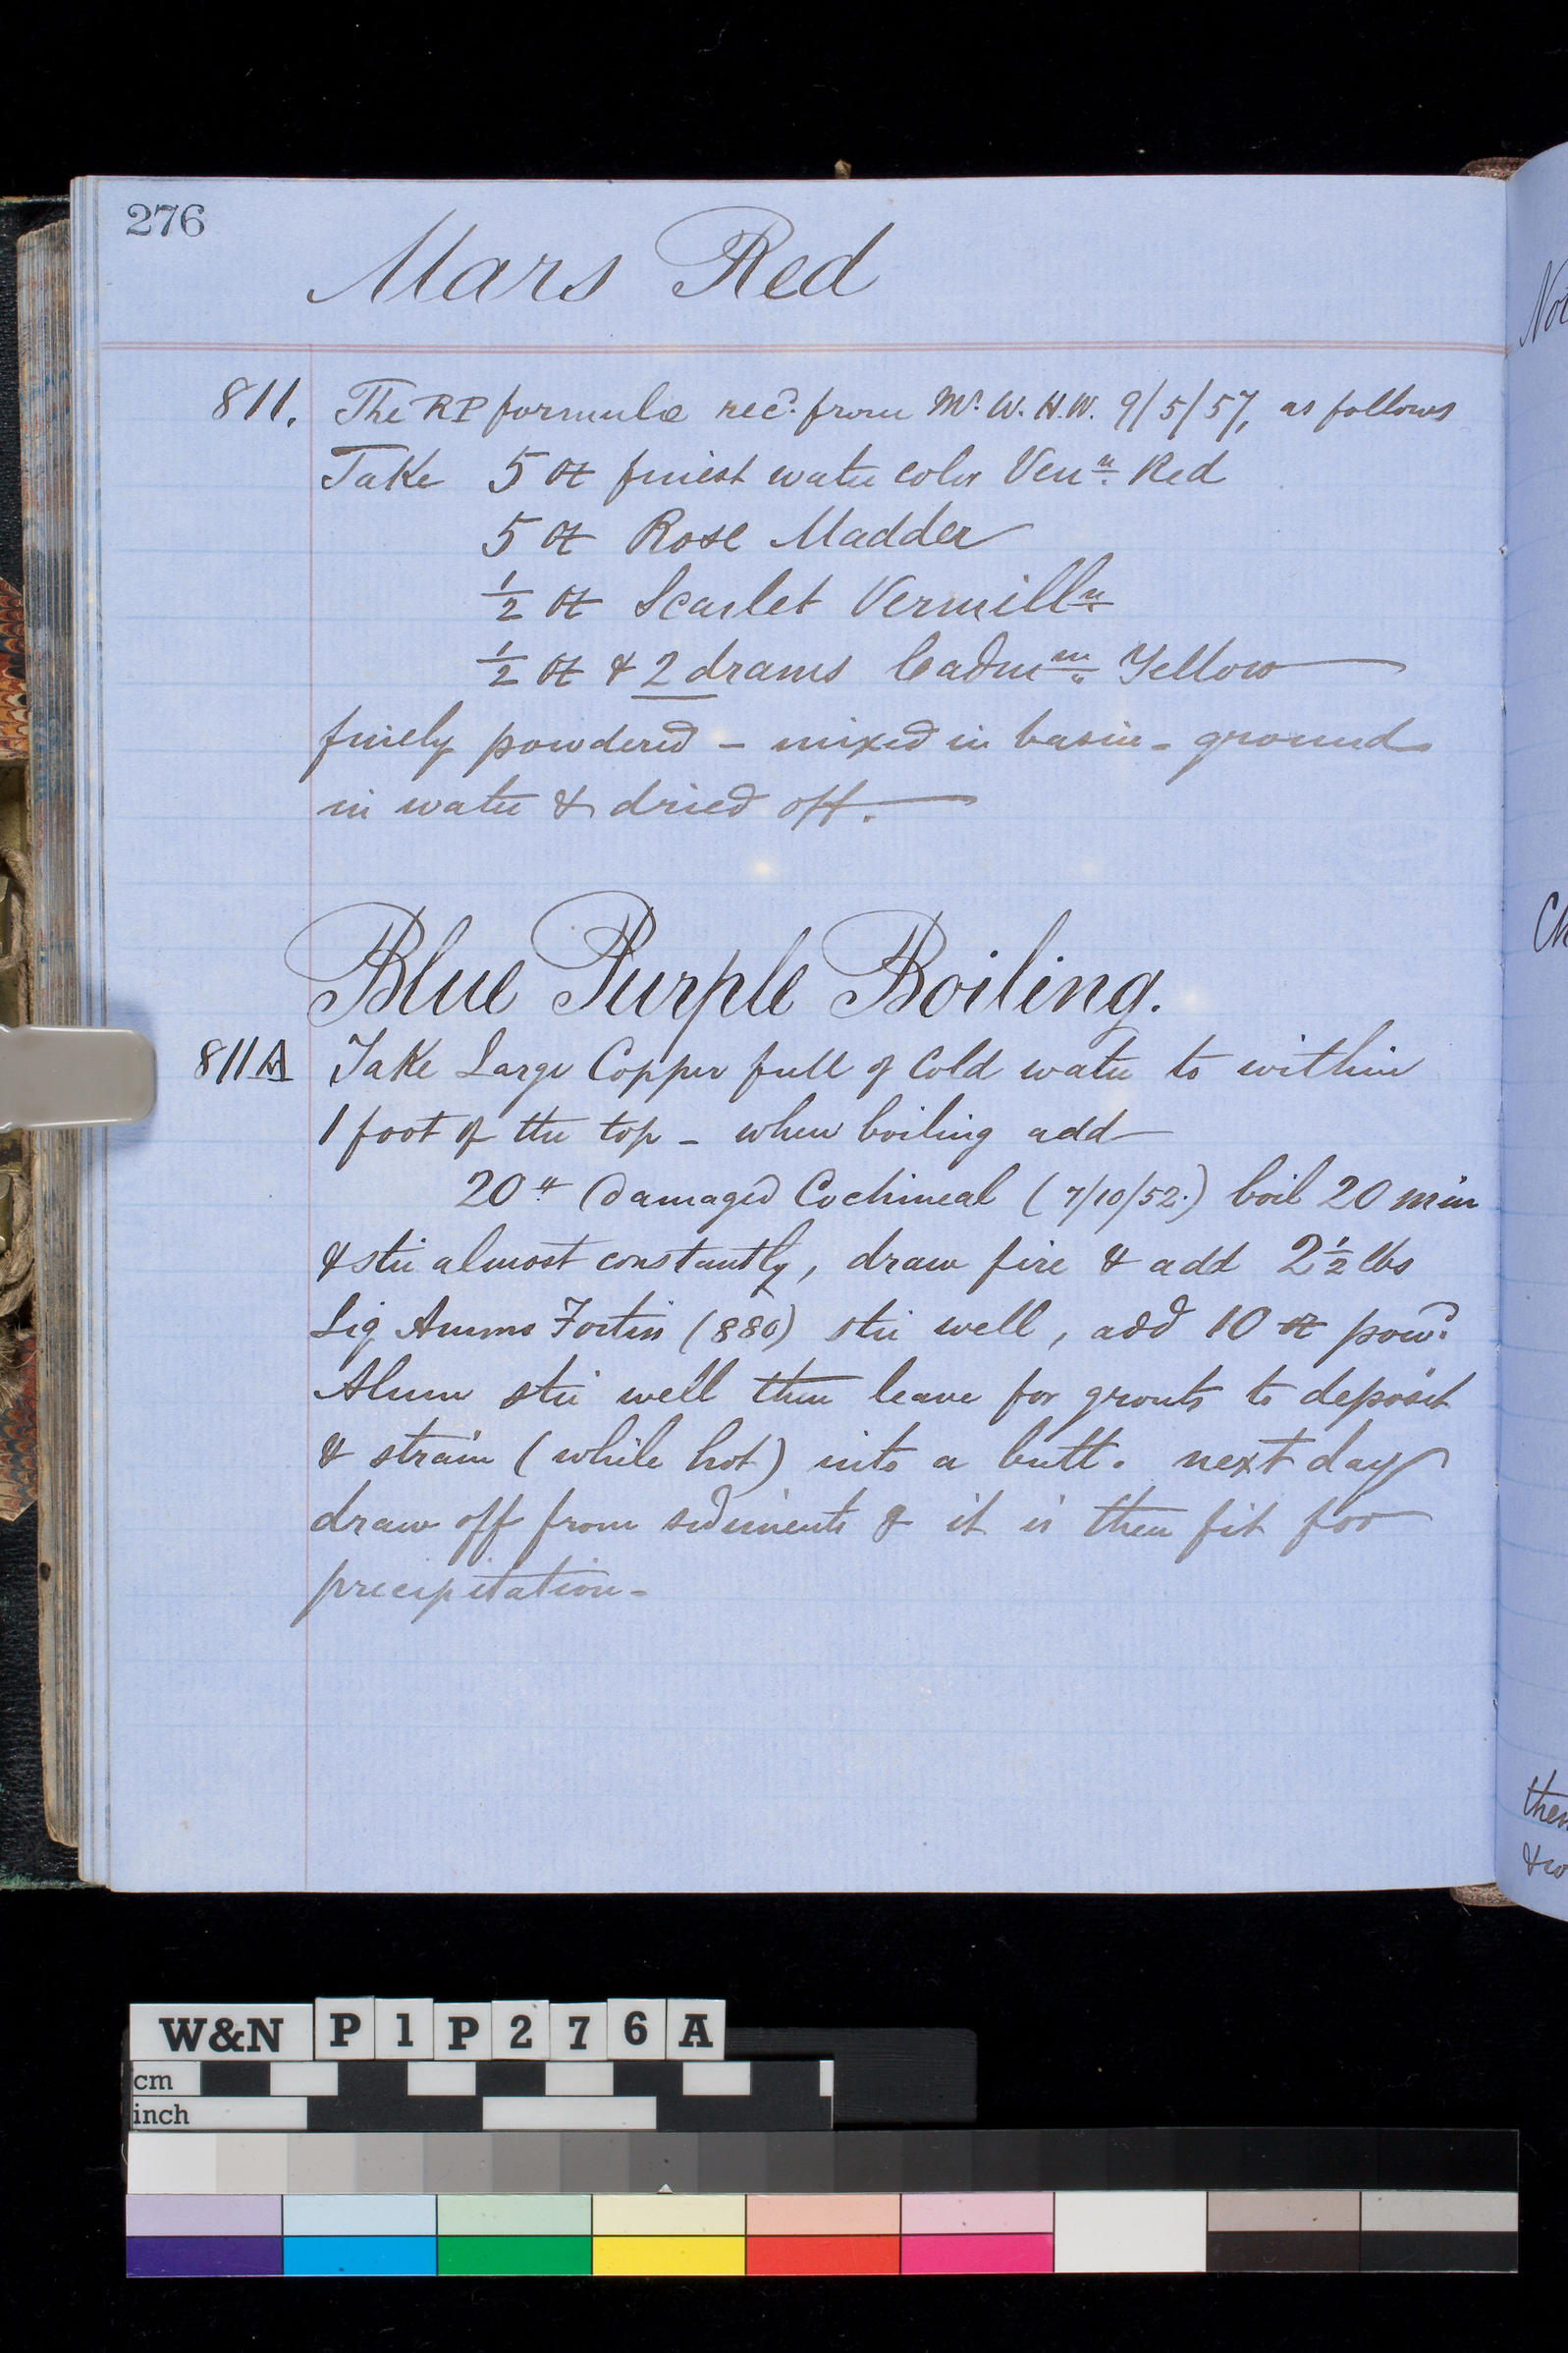 276
Mars Red
811. The RP formula rec.d from Mr. W. H. W. 9/5/57, as follows
Take 5 oz finest water color Ven.n Red
5 oz Rose Madder
1/2 oz Scarlet Vermill.n
1/2 oz & 2 drams Cadm.m Yellow
finely powdered - mixed in basin - ground
in water & dried off.
Blue Purple Boiling.
811A Take Large Copper full of Cold water to within
1 foot of the top - when boiling add
20 # Damaged Cochineal (7/10/52.) boil 20 min
& stir almost constantly, draw fire & add 2 1/2 lbs
Liq Ammo Fortis (880) stir well, add 10 oz pow.d
Alum stir well then leave for grouts to deposit
& strain (while hot) into a butt. next day
draw off from sediments & it is then fit for
precipitation -
No
Ch
then
& co
W&N P1P276A
cm
inch